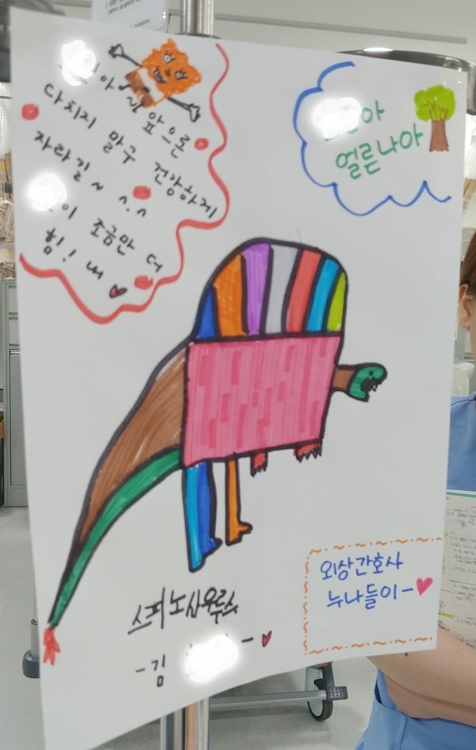 아 앞으로
다치지 말구 건강하게
자라길~ ^.^
이 조금만 더
힘! 내 ♥
아
얼른나아
스피노사우루스
-김 - ♥
외상간호사
누나들이-♥